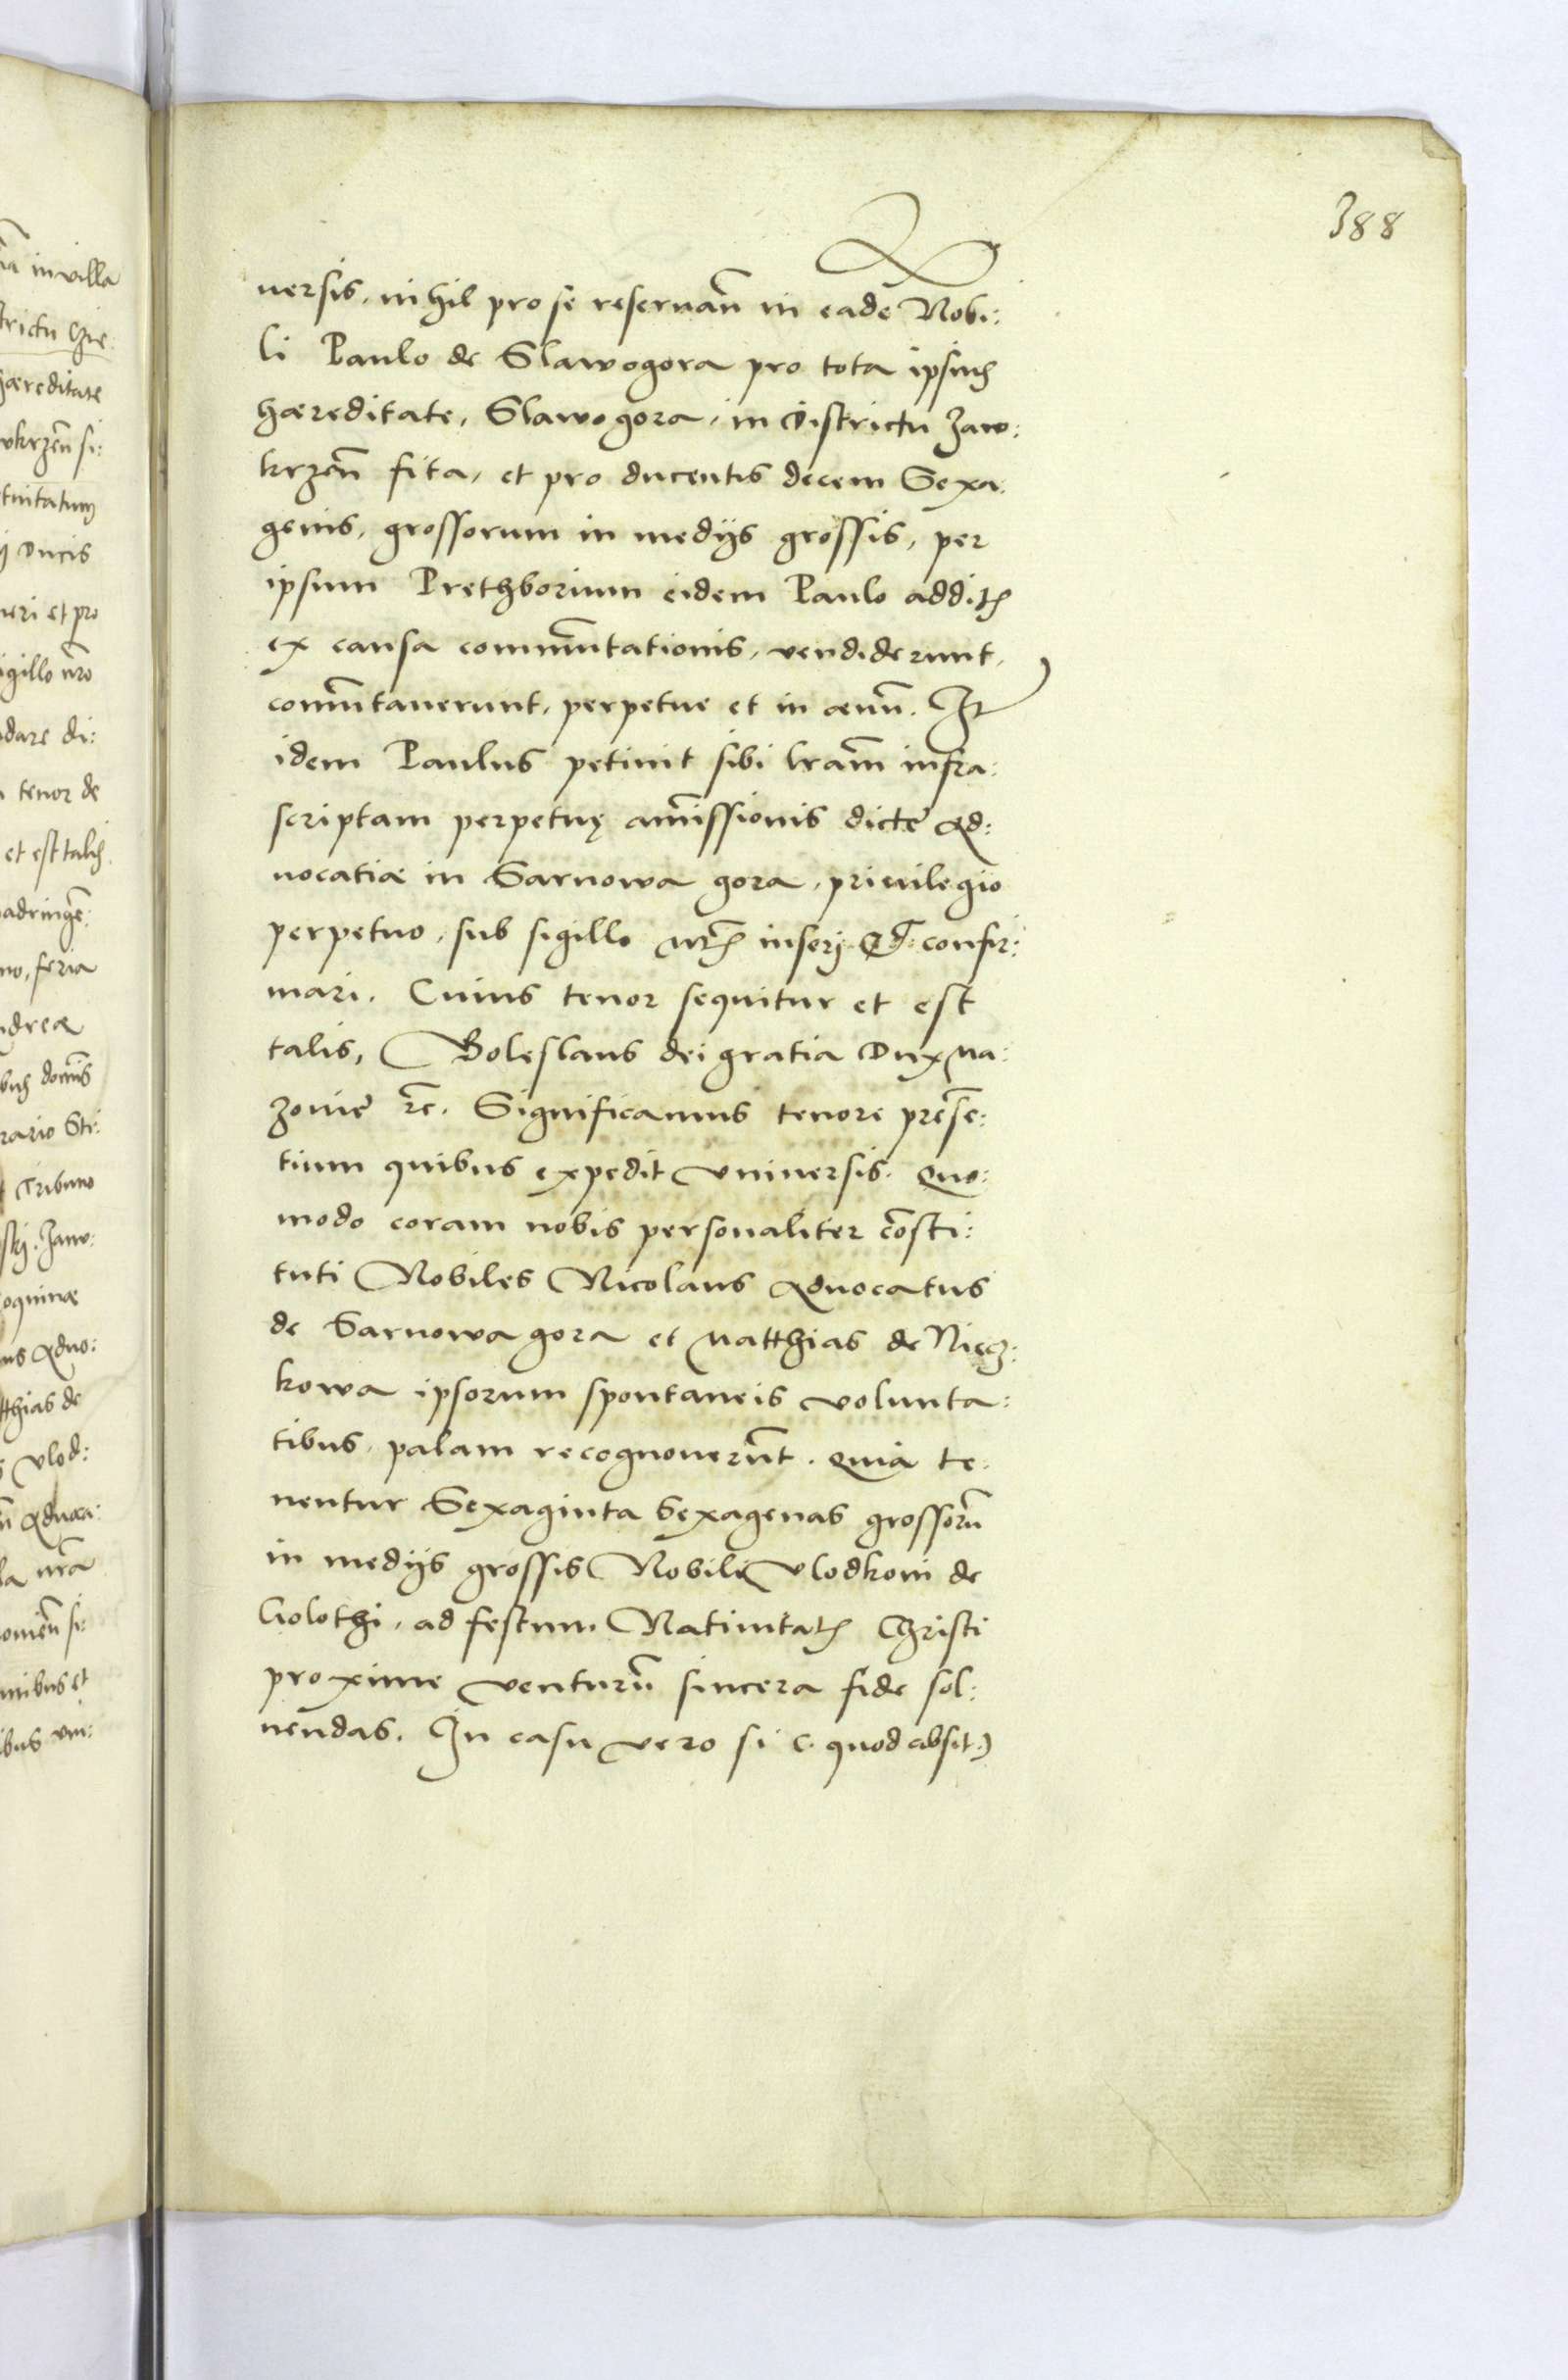 388
uersis, nihil pro se reseruan̄ in eadē Nobi:
li Paulo de Slawogora pro tota ipsius
haereditate, Slawogora, in Districtu Zaw:
krzen̄ sita, et pro ducentis decem Sexa:
genis, grossorum in medijs grossis, per
ipsum Prethborium eidem Paulo additis
ex causa commutationis, vendiderunt,
com̄utauerunt, perpetue et in aeuū. Et
idem Paulus petiuit sibi lram̄ infra:
scriptam perpetuę am̄issionis dictę Ad:
uocatiae in Sarnowa gora, priuilegio
perpetuo, sub sigillo nrīs inserj et confir:
mari. Cuius tenor sequitur et est
talis, Boleslaus dei gratia Dux Ma:
zouię rc̄. Significamus tenore pręsē:
tium quibus expedit vniuersis. Quo:
modo coram nobis personaliter cōsti:
tuti Nobiles Nicolaus Aduocatus
de Sarnowa gora et Matthias de Niecz:
kowa ipsorum spontaneis volunta:
tibus, palam recognouerūt. Quia te:
nentur Sexaginta Sexagenas grossorū
in medijs grossis Nobili Vlodkoni de
Golothi, ad festum Natiuitatis Christi
proxime venturū sincera fide sol:
uendas. In casu vero si (quod absit)
a in villa
trictu Cie:
haereditate
wkrzen̄ si:
tuitatum
j Ducis
neri et pro
igillo nr̄o
dare di:
tenor de
et est talis
adringē:
no, feria
ndreae
bus domīs
rario Str:
Tribuno
skj. Zaw:
oquinae
us Aduo:
tthias de
Vlod:
n̄ Aduoca:
la nr̄a
omēn si:
nibus et
ibus vni: